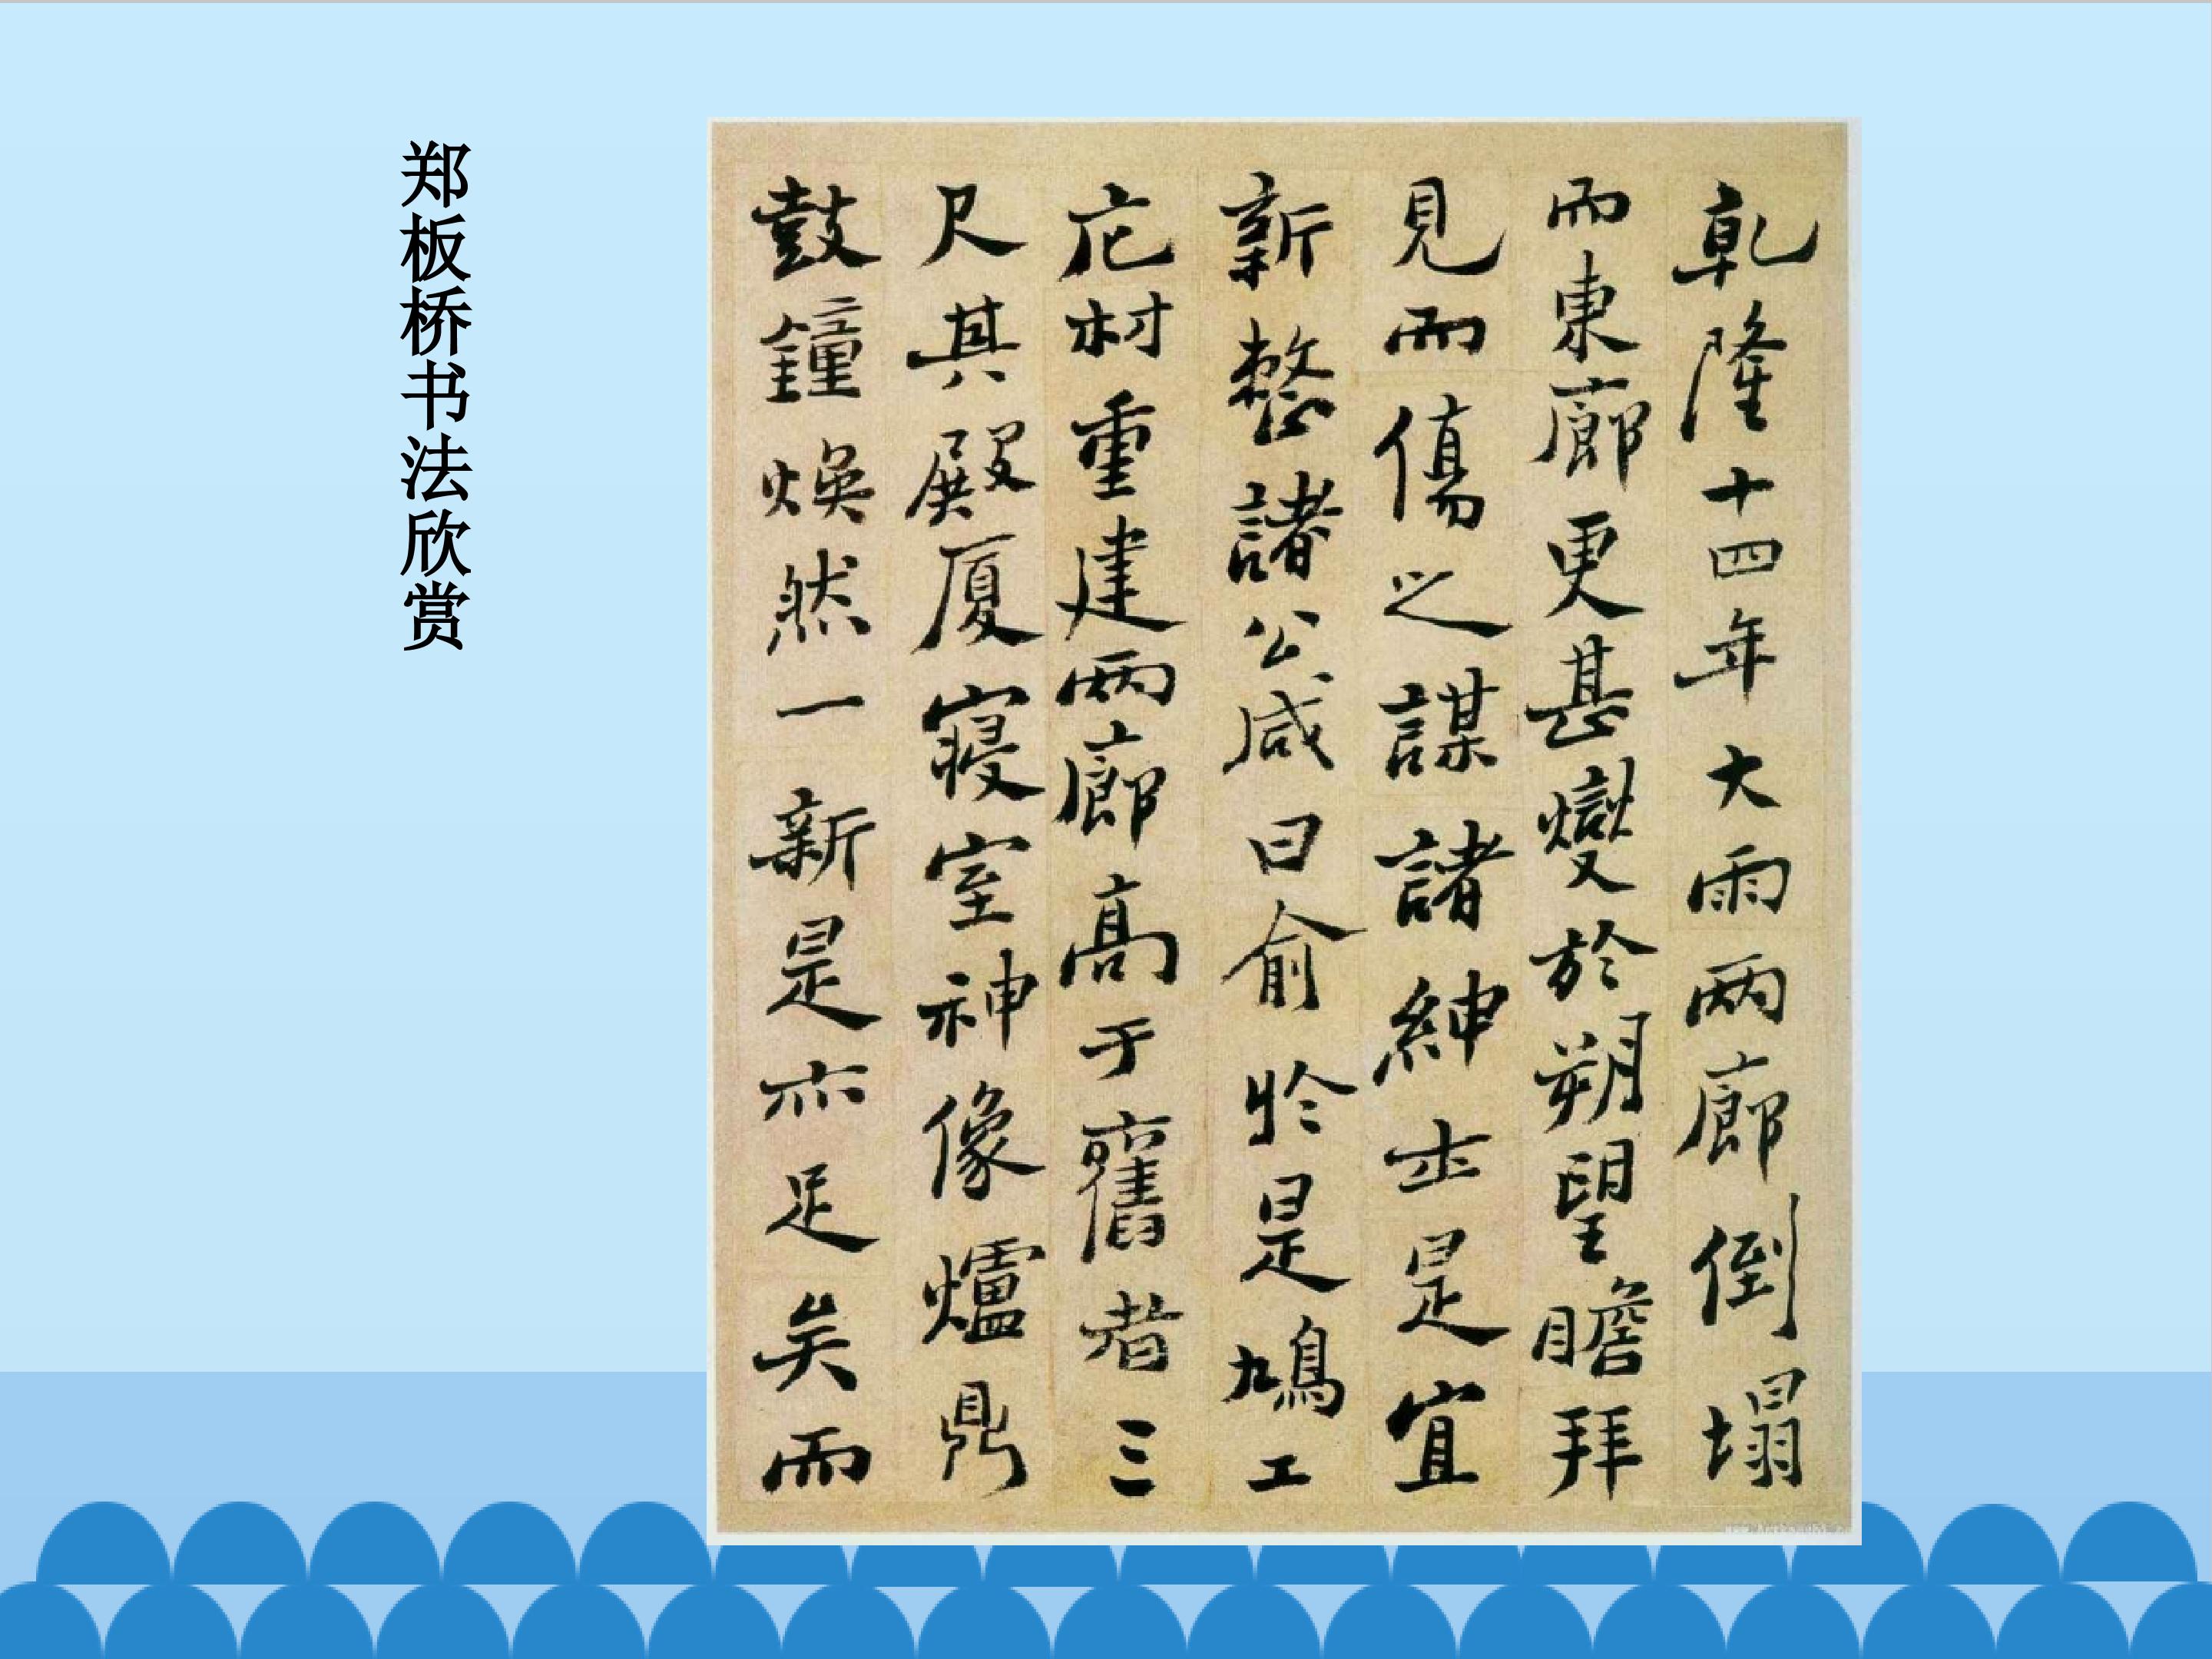 郑板桥书法欣赏
乾隆十四年大雨兩廊倒塌
而東廊更甚爕於朔望瞻拜
見而傷之謀諸紳士是宜
新整諸公咸曰俞於是鳩工
庀材重建兩廊高于舊者三
尺其殿廈寢室神像爐鼎
鼓鐘煥然一新是亦足矣而